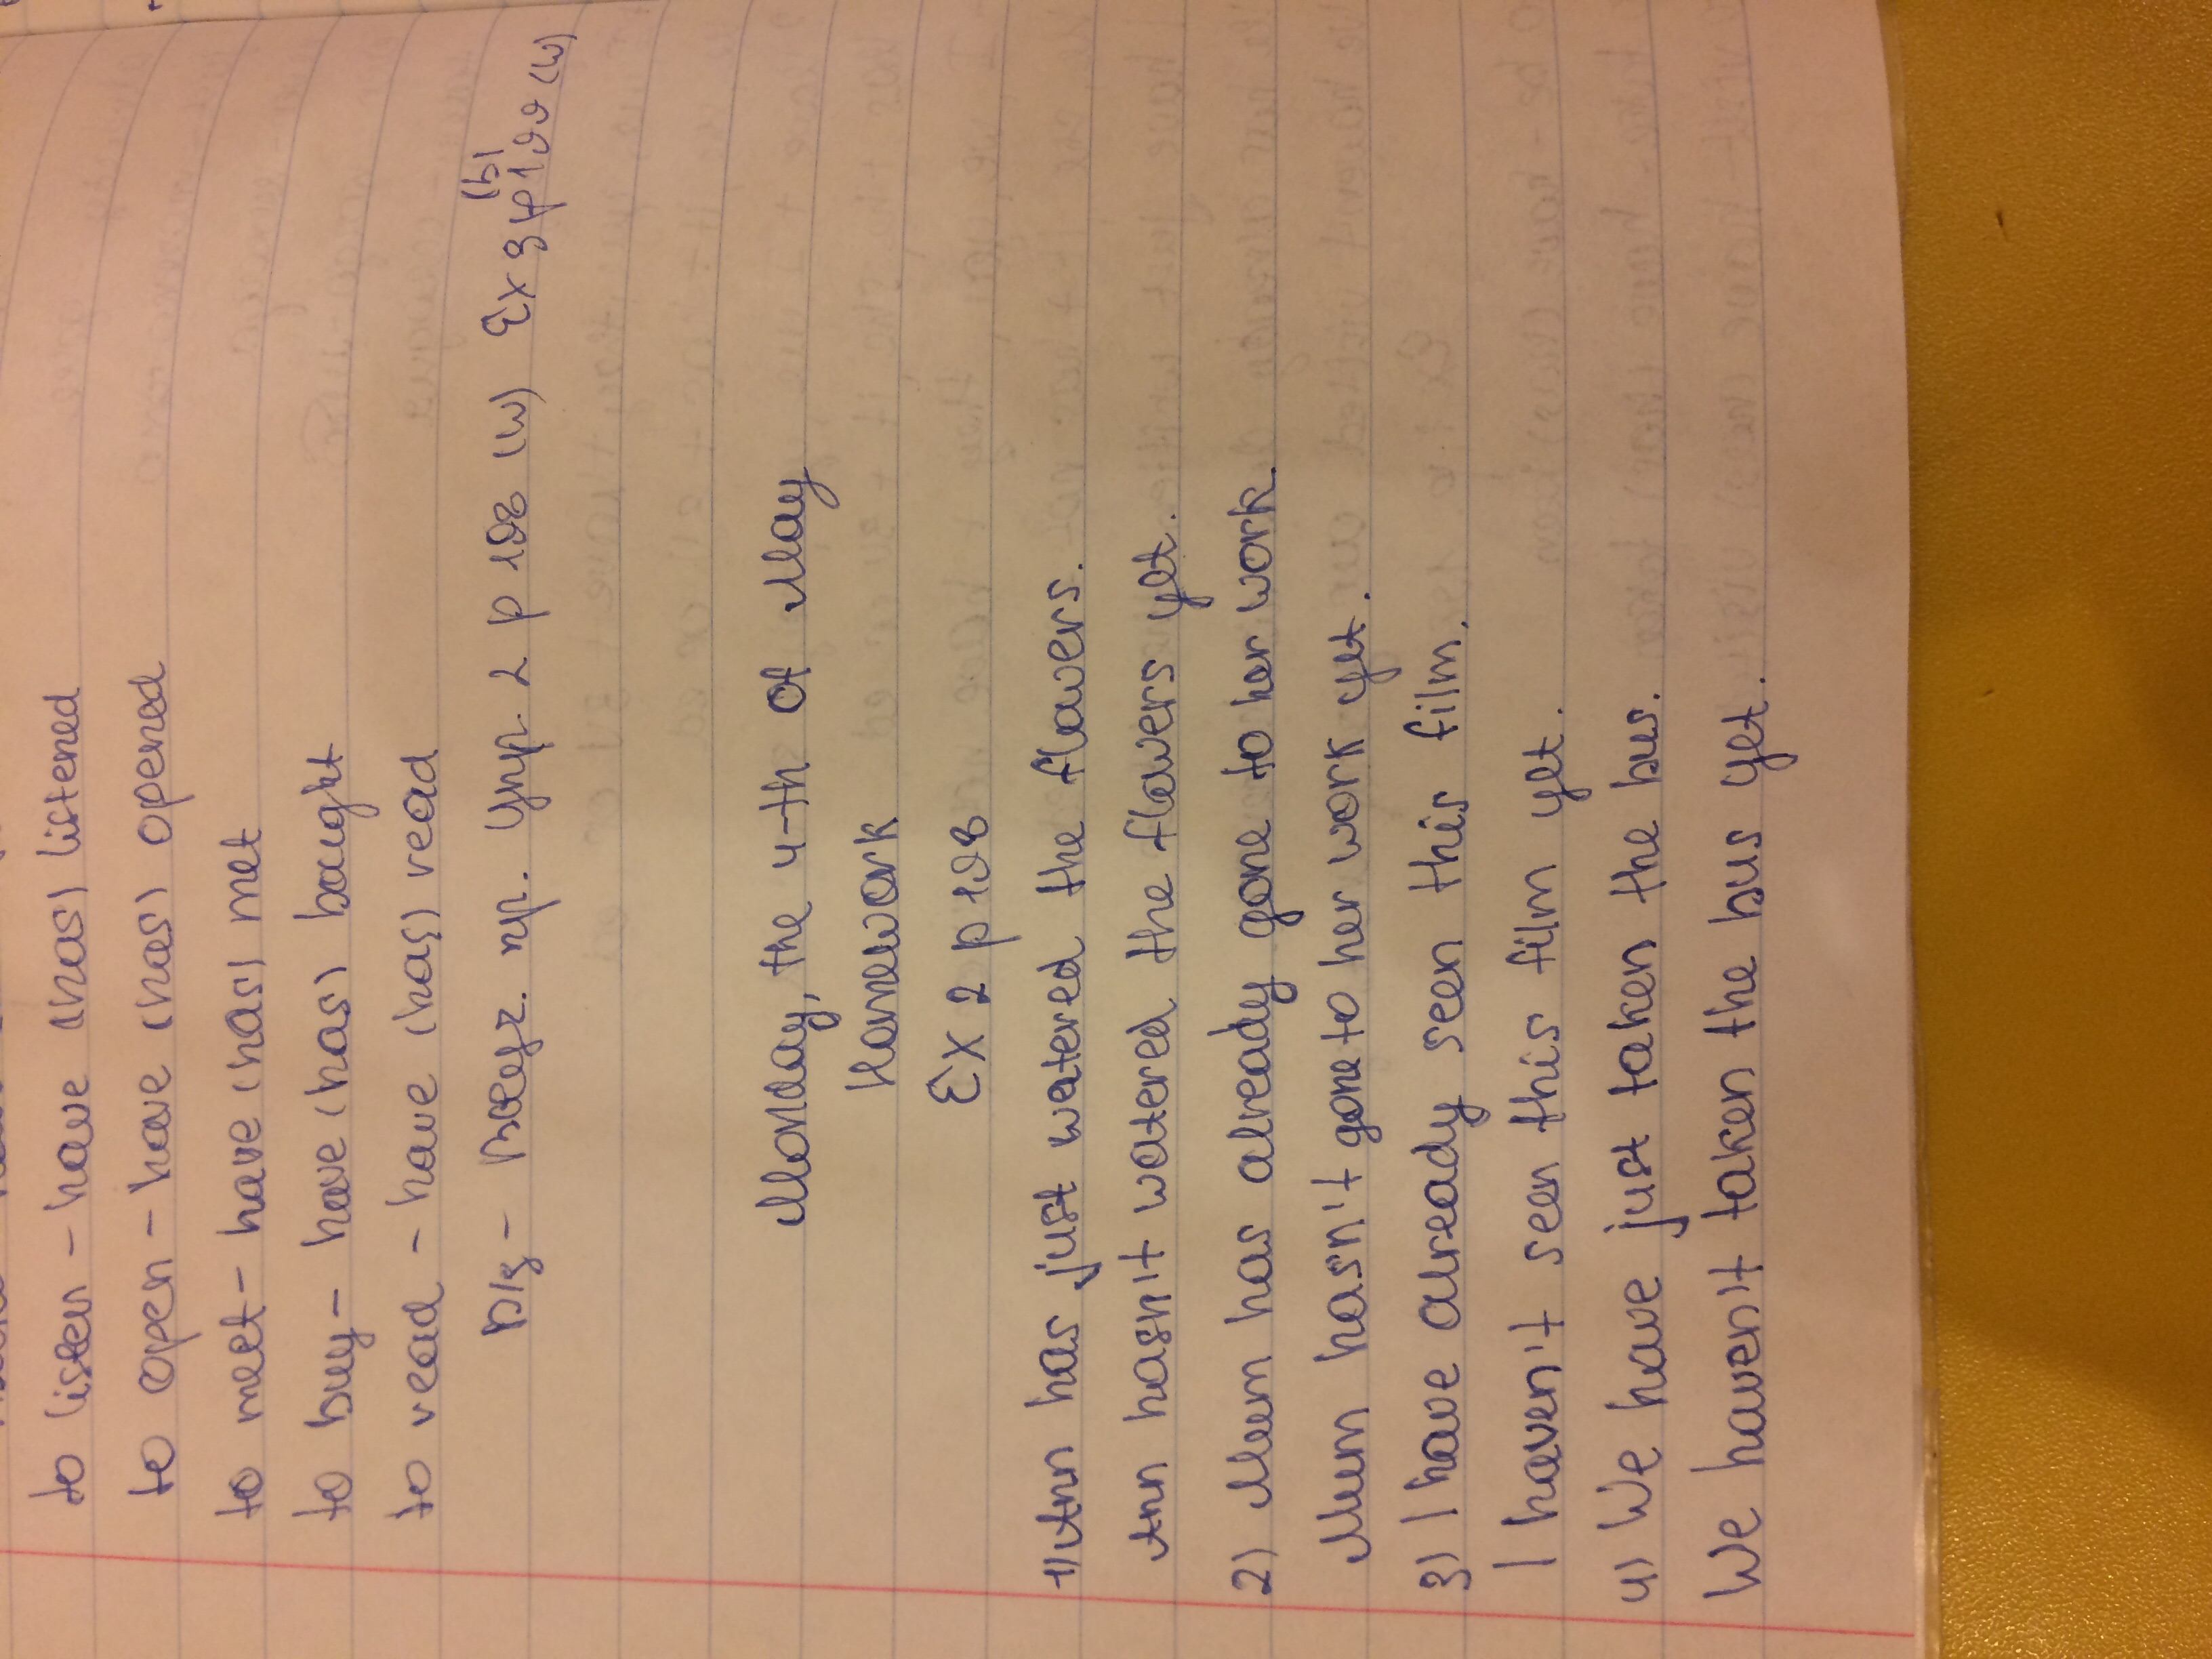 to listen - have (has) listened
to open - have (has) opened
to meet - have (has) met
to buy - have (has) bought
to read - have (has) read
D/з - пр. Упр. 2 p 198 (w) Ex 3 p 199 (w)
(b)
Monday, the 4-th of May
Homework
Ex 2 p 198
1) Ann has just watered the flowers.
Ann hasn't watered the flowers yet.
2) Mum has already gone to her work.
Mum hasn't gone to her work yet.
3) I have already seen this film.
I haven't seen this film yet.
4) We have just taken the bus.
We haven't taken the bus yet.